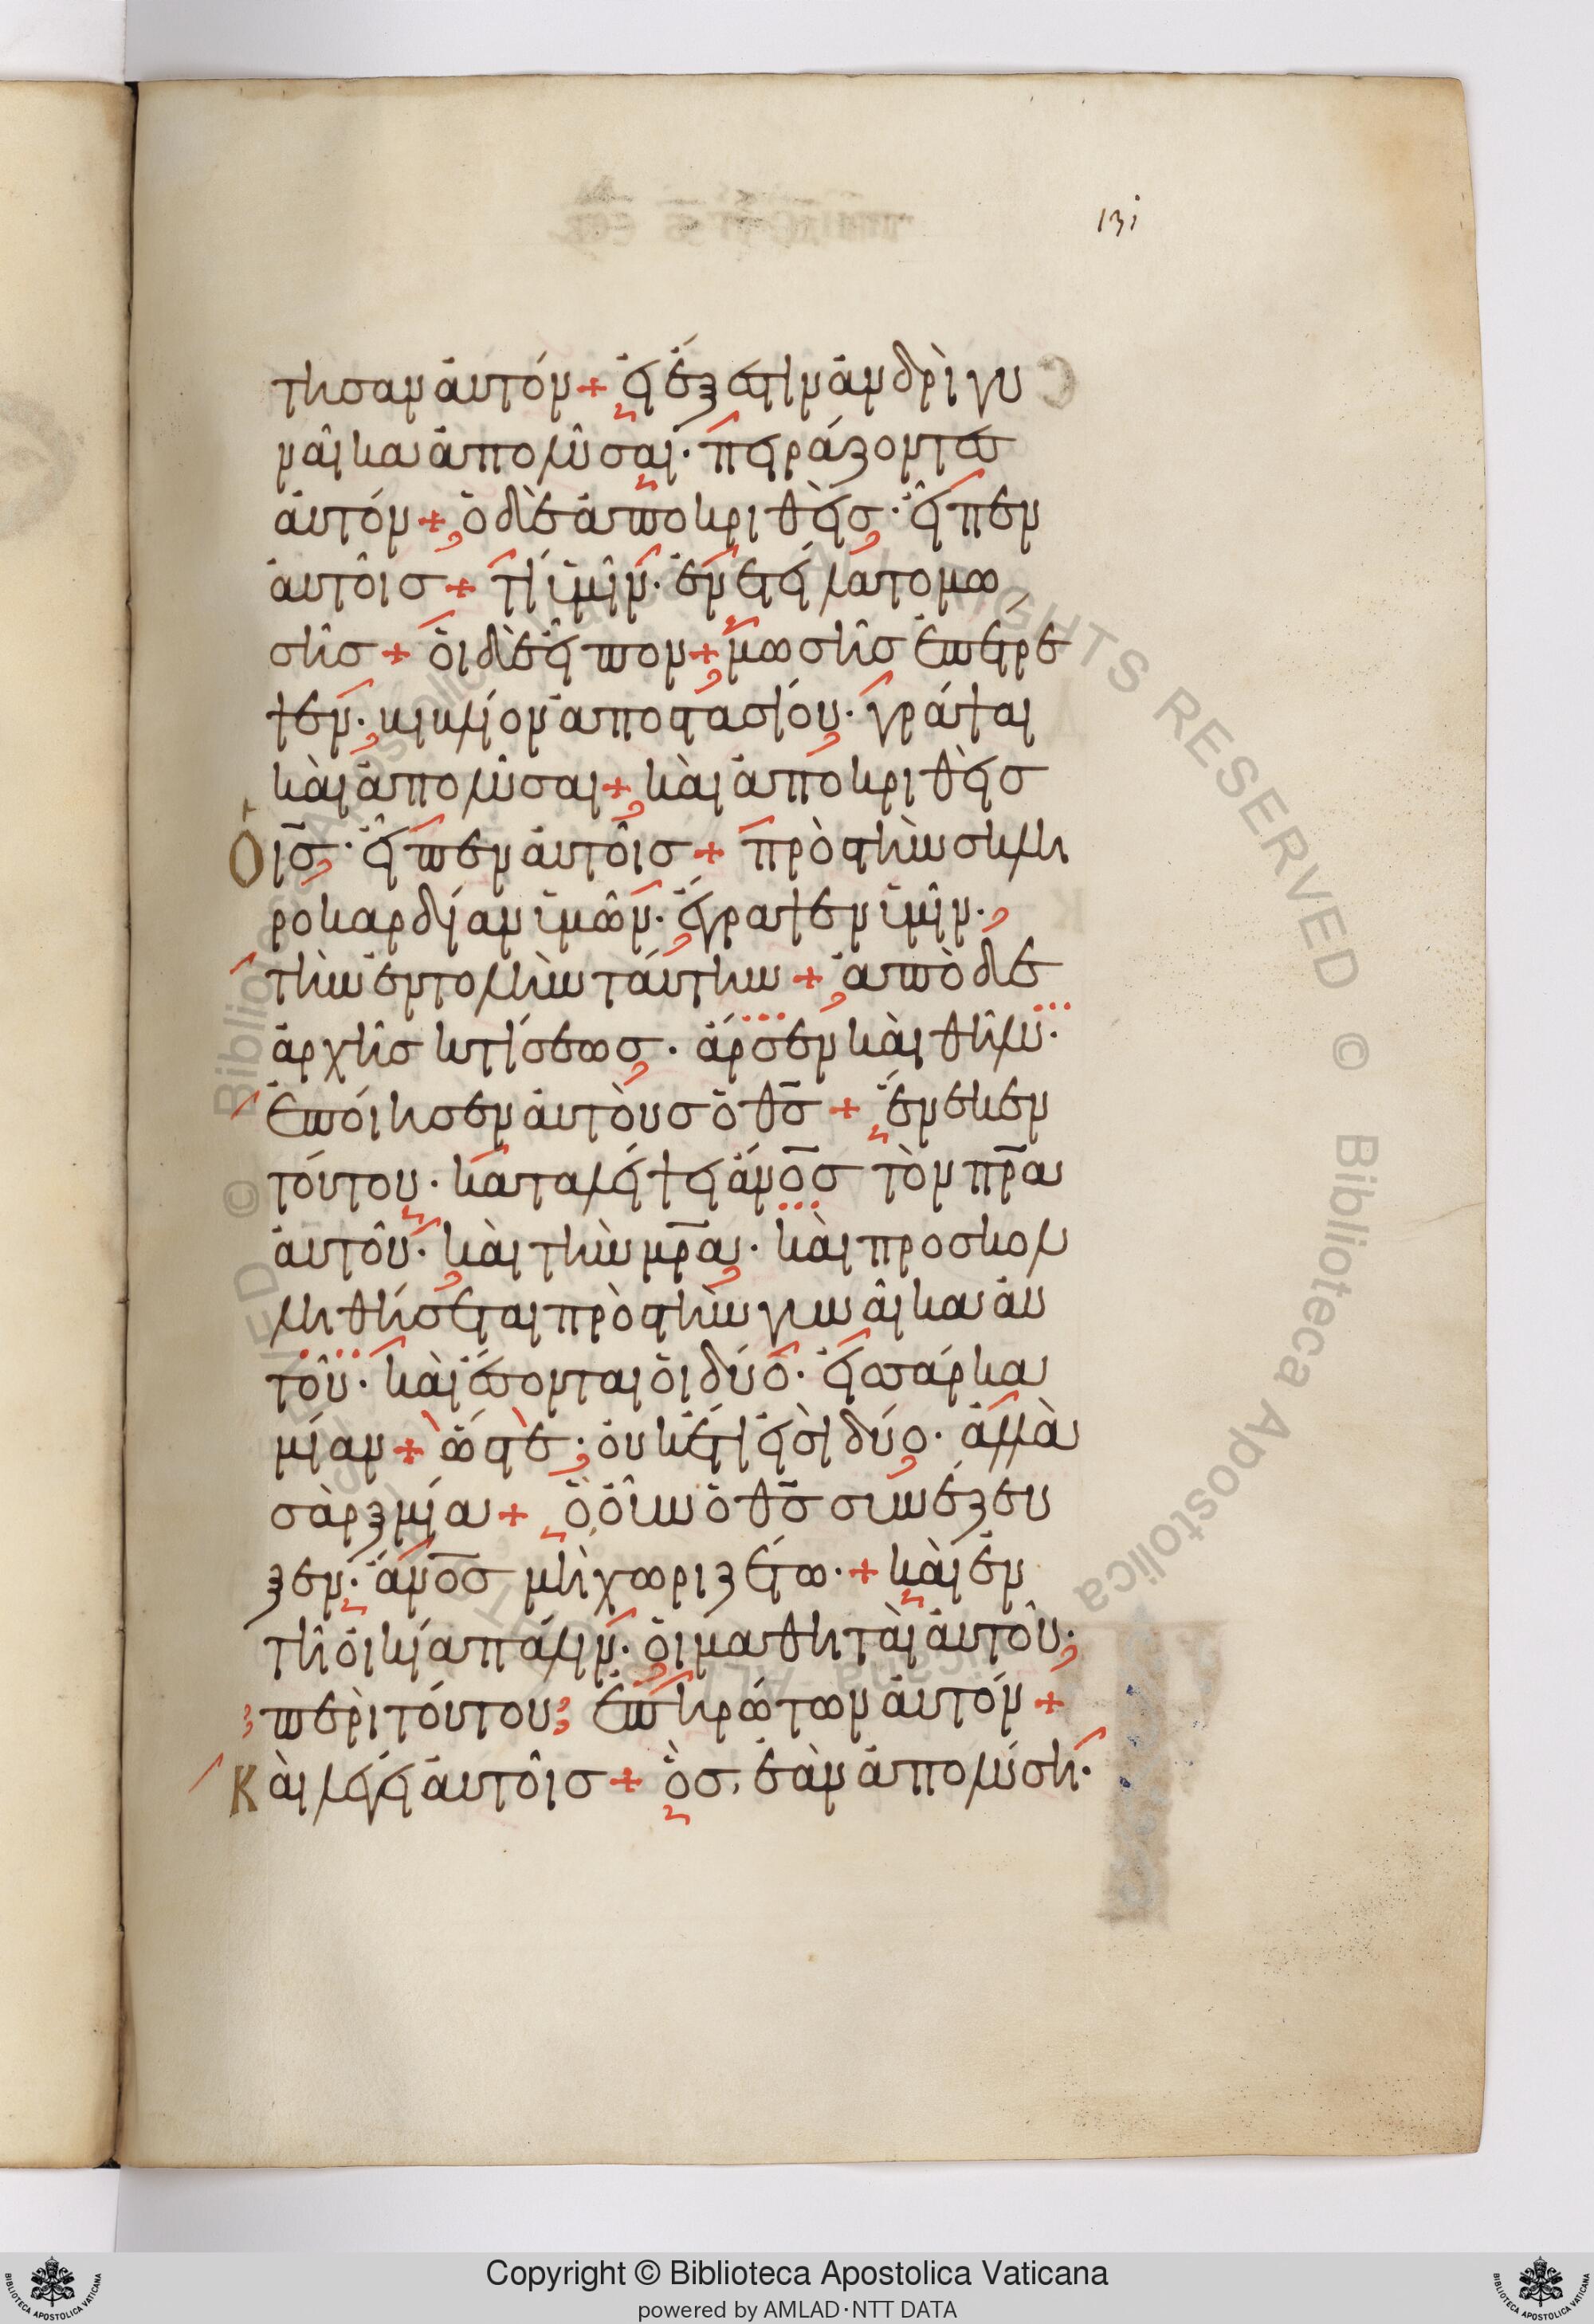 131
τησαν ἀυτόν + εἰ ἔξεστιν ἀνδρὶ γυ
ναῖκα ἀπολῦσαι· πειράζοντες
ἀυτόν + ὁ δὲ ἀποκριθεὶς· εἶπεν
ἀυτοῖς + τί ὑμῖν· ἐνετείλατο μω
σῆς + ὁι δὲ εἶπον + μωσῆς ἐπέτρε
ψεν· βιβλίον ἀποστασίου· γράψαι
καὶ ἀπολῦσαι + καὶ ἀποκριθεὶς
Ὁ ις· εἶπεν ἀυτοῖς + πρὸς τὴν σκλη
ροκαρδίαν ὑμῶν· ἔγραψεν ὑμῖν·
τὴν ἐντολὴν ταύτην + ἀπὸ δὲ
ἀρχῆς κτίσεως· ἄρσεν καὶ θῆλυ·
ἐποίησεν ἀυτοὺς ὁ θς + ἕνεκεν
τούτου· καταλείψει ἄνος τὸν πρα
ἀυτοῦ· καὶ τὴν μρα· καὶ προσκολ
ληθήσεται πρὸς τὴν γυναῖκα ἀυ
τοῦ· καὶ ἔσονται ὁι δύο· εἰς σάρκα
μίαν + ὥστε· ὀυκέτι εἰσὶ δύο· ἀλλὰ
σὰρξ μία + ὃ ὀῦν ὁ θς συνέζευ
ξεν· ἄνος μὴ χωριζέτω· + καὶ ἐν
τῇ ὀικία πάλιν· ὁι μαθηταὶ ἀυτοῦ·
περὶ τούτου· ἐπηρώτων ἀυτόν +
Καὶ λέγει ἀυτοῖς + ὃς ἐὰν ἀπολύσῃ·
© Biblioteca Apostolica Vaticana - ALL RIGHTS RESERVED
Copyright © Biblioteca Apostolica Vaticana
powered by AMLAD·NTT DATA
BIBLIOTECA APOSTOLICA VATICANA
BIBLIOTECA APOSTOLICA VATICANA